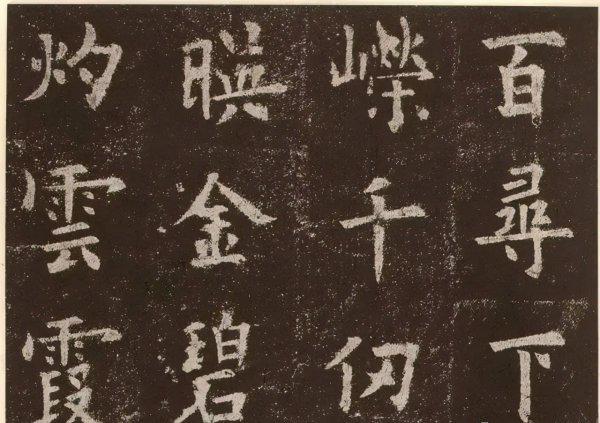 百尋下
嶸千仞
暎金碧
灼雲霞